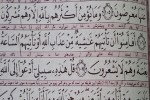 عنها معرضون ۝ وما يؤمن أكثرهم بالله إلا وهم مشركون
۝ أفأمنوا أن تأتيهم غاشية من عذاب الله أو تأتيهم الساعة
بغتة وهم لا يشعرون ۝ قل هذه سبيلي أدعو إلى الله